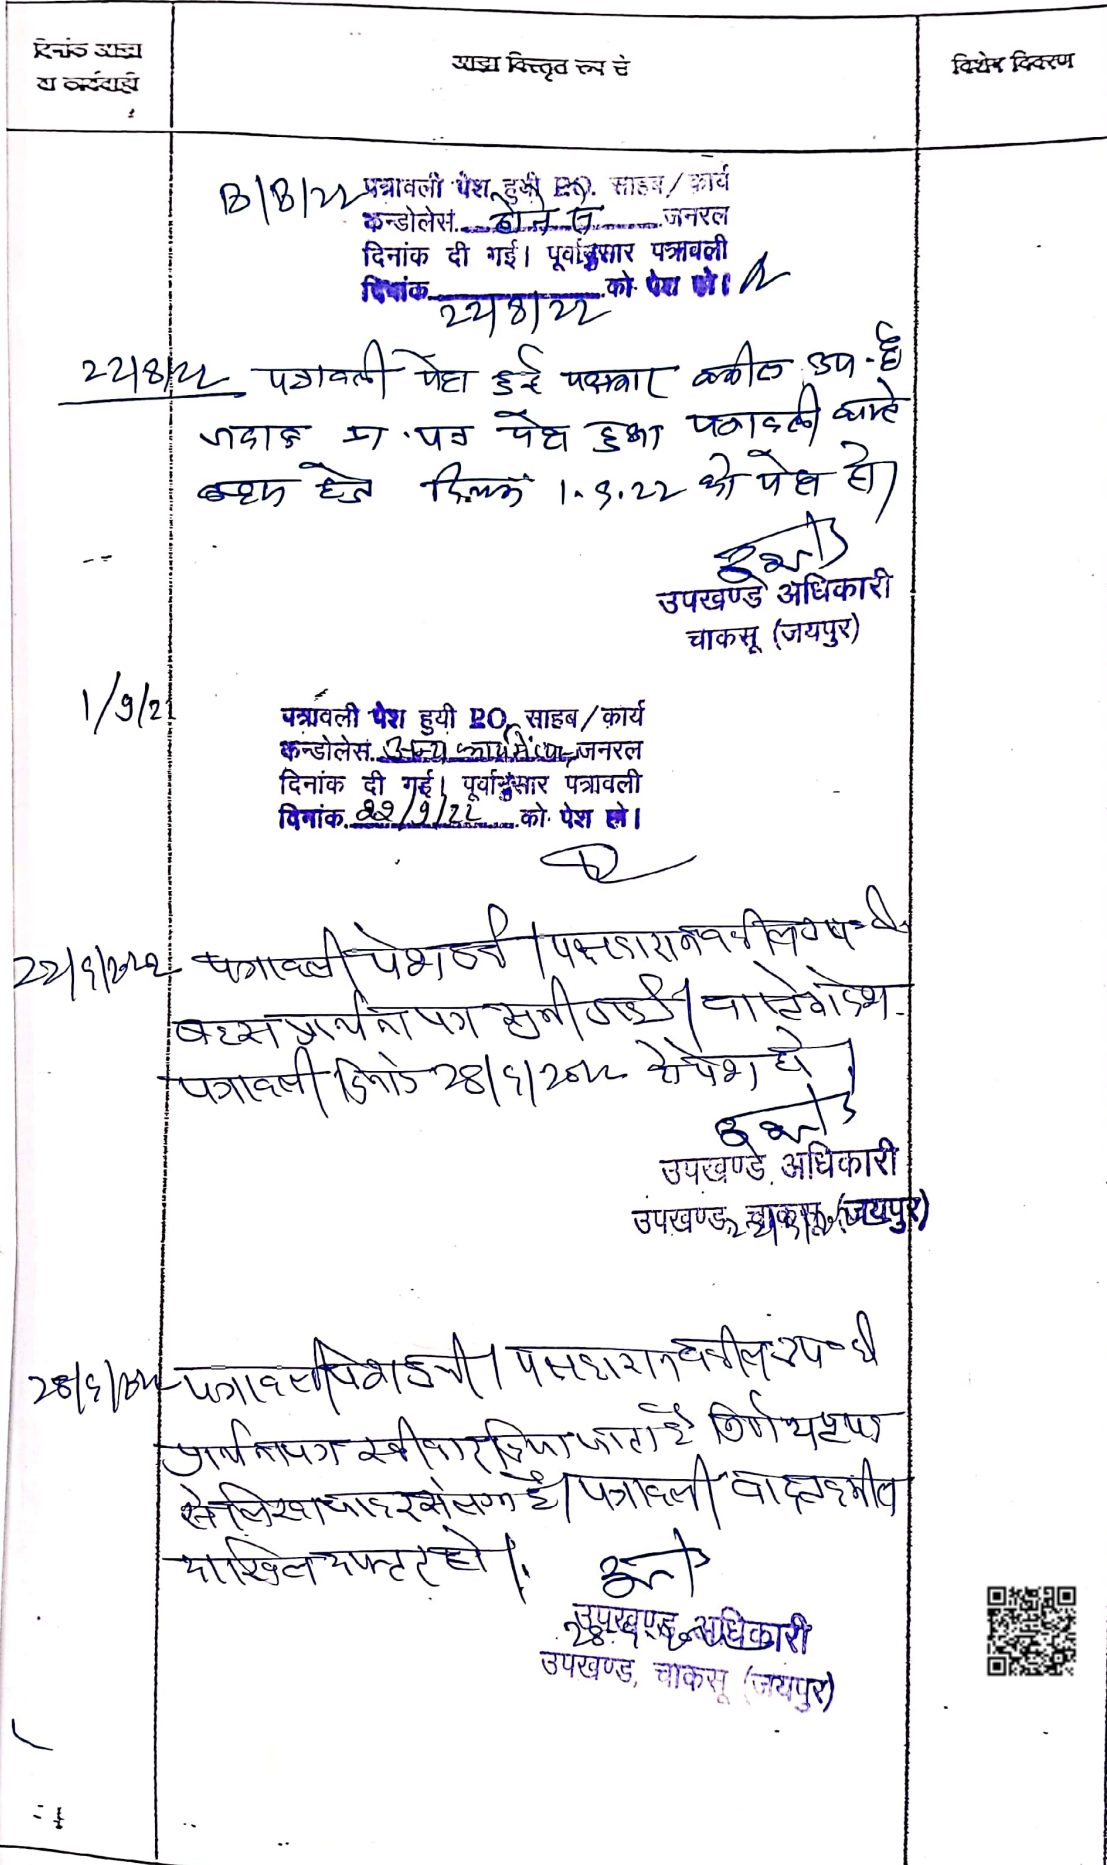 दिनांक आज्ञा
या कार्यवाही
आज्ञा विस्तृत रूप से
विशेष विवरण
पत्रावली पेश हुयी P.O. साहब/कार्य
कन्डोलेंस जनरल
दिनांक दी गई। पूर्वानुसार पत्रावली
दिनांक 22/8/22 को पेश हो।
22/8/22 पत्रावली पेश हुई पक्षकार वकील उप. है
जवाब प्रा. पत्र पेश हुआ पत्रावली वास्ते
बहस हेतु दिनांक 1.9.22 को पेश हो।
उपखण्ड अधिकारी
चाकसू (जयपुर)
1/9/2
पत्रावली पेश हुयी P.O. साहब/कार्य
कन्डोलेंस अन्य कार्य में जनरल
दिनांक दी गई। पूर्वानुसार पत्रावली
दिनांक 22/9/22 को पेश हो।
22/9/2022 पत्रावली पेश हुई। पक्षकारान वकील उप.
बहस प्रार्थना पत्र सुनी गई। वास्ते आदेश
पत्रावली दिनांक 28/9/2022 को पेश हो।
उपखण्ड अधिकारी
उपखण्ड, चाकसू (जयपुर)
पत्रावली पेश हुयी। पक्षकारान वकील उप. है
प्रार्थना पत्र स्वीकार किया जाता है निर्णय पृथक
से लिखा जाकर संलग्न है। पत्रावली बाद तकमील
दाखिल दफ्तर हो।
उपखण्ड अधिकारी
उपखण्ड, चाकसू (जयपुर)